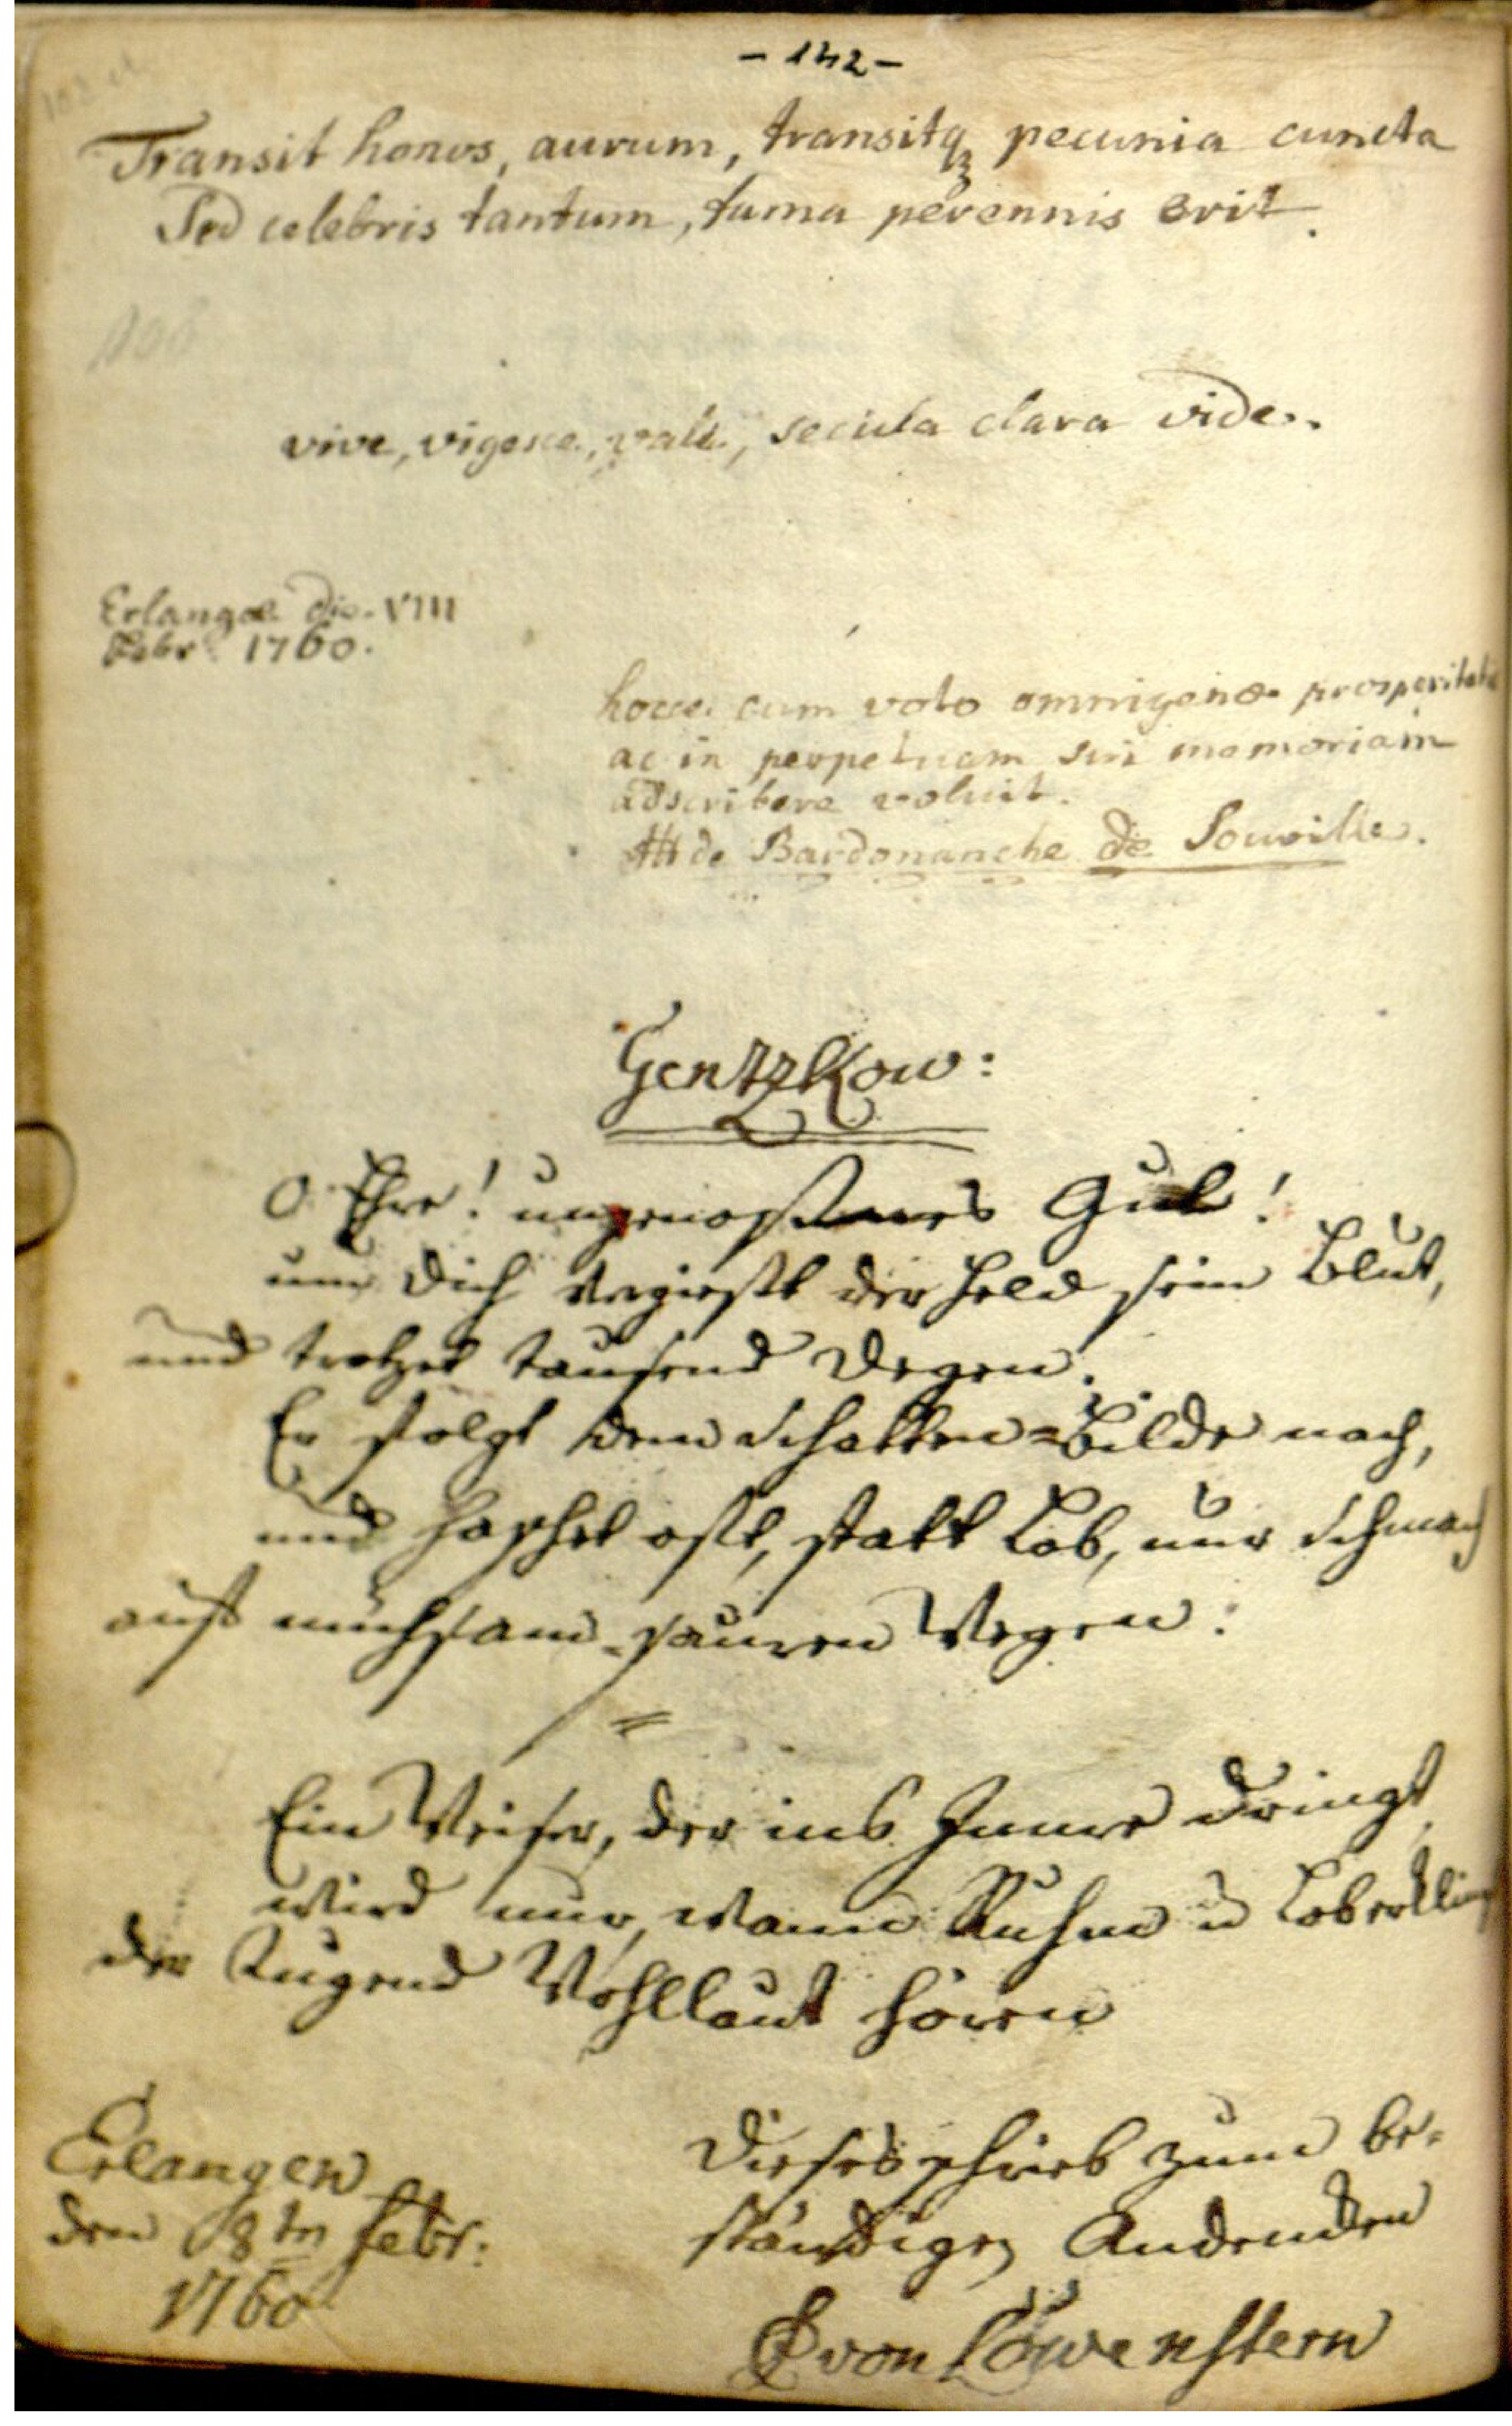 - 142 -
Transit honos, aurum, transitq; pecunia cuncta
Sed celebris tantum, fama perennis erit.
vive, vigesce, vale, secula clara vide.
Erlangæ die VIII
Febr 1760.
hocce cum voto omnigenæ prosperitatis
ac in perpetuam sui memoriam
adscribere voluit.
de Bardonanche de Souville.
Gentzkow:
O Ehre! ungenoßenes Gut!
um dich vergießt der Held sein Blut,
und trotzet tausend Degen.
Er folgt dem Schatten=Bilde nach,
und haschet oft, statt Lob, nur Schmach
auf mühsam-sauren Wegen:
Ein Weiser, der ins Innre dringt
wird nur, wann Ruhm u Lob erklingt
der Tugend Wohllaut hören
Erlangen
den 8tn Febr:
1760
Dieses schrieb zum be-
ständigen Andencken
von Löwenstern